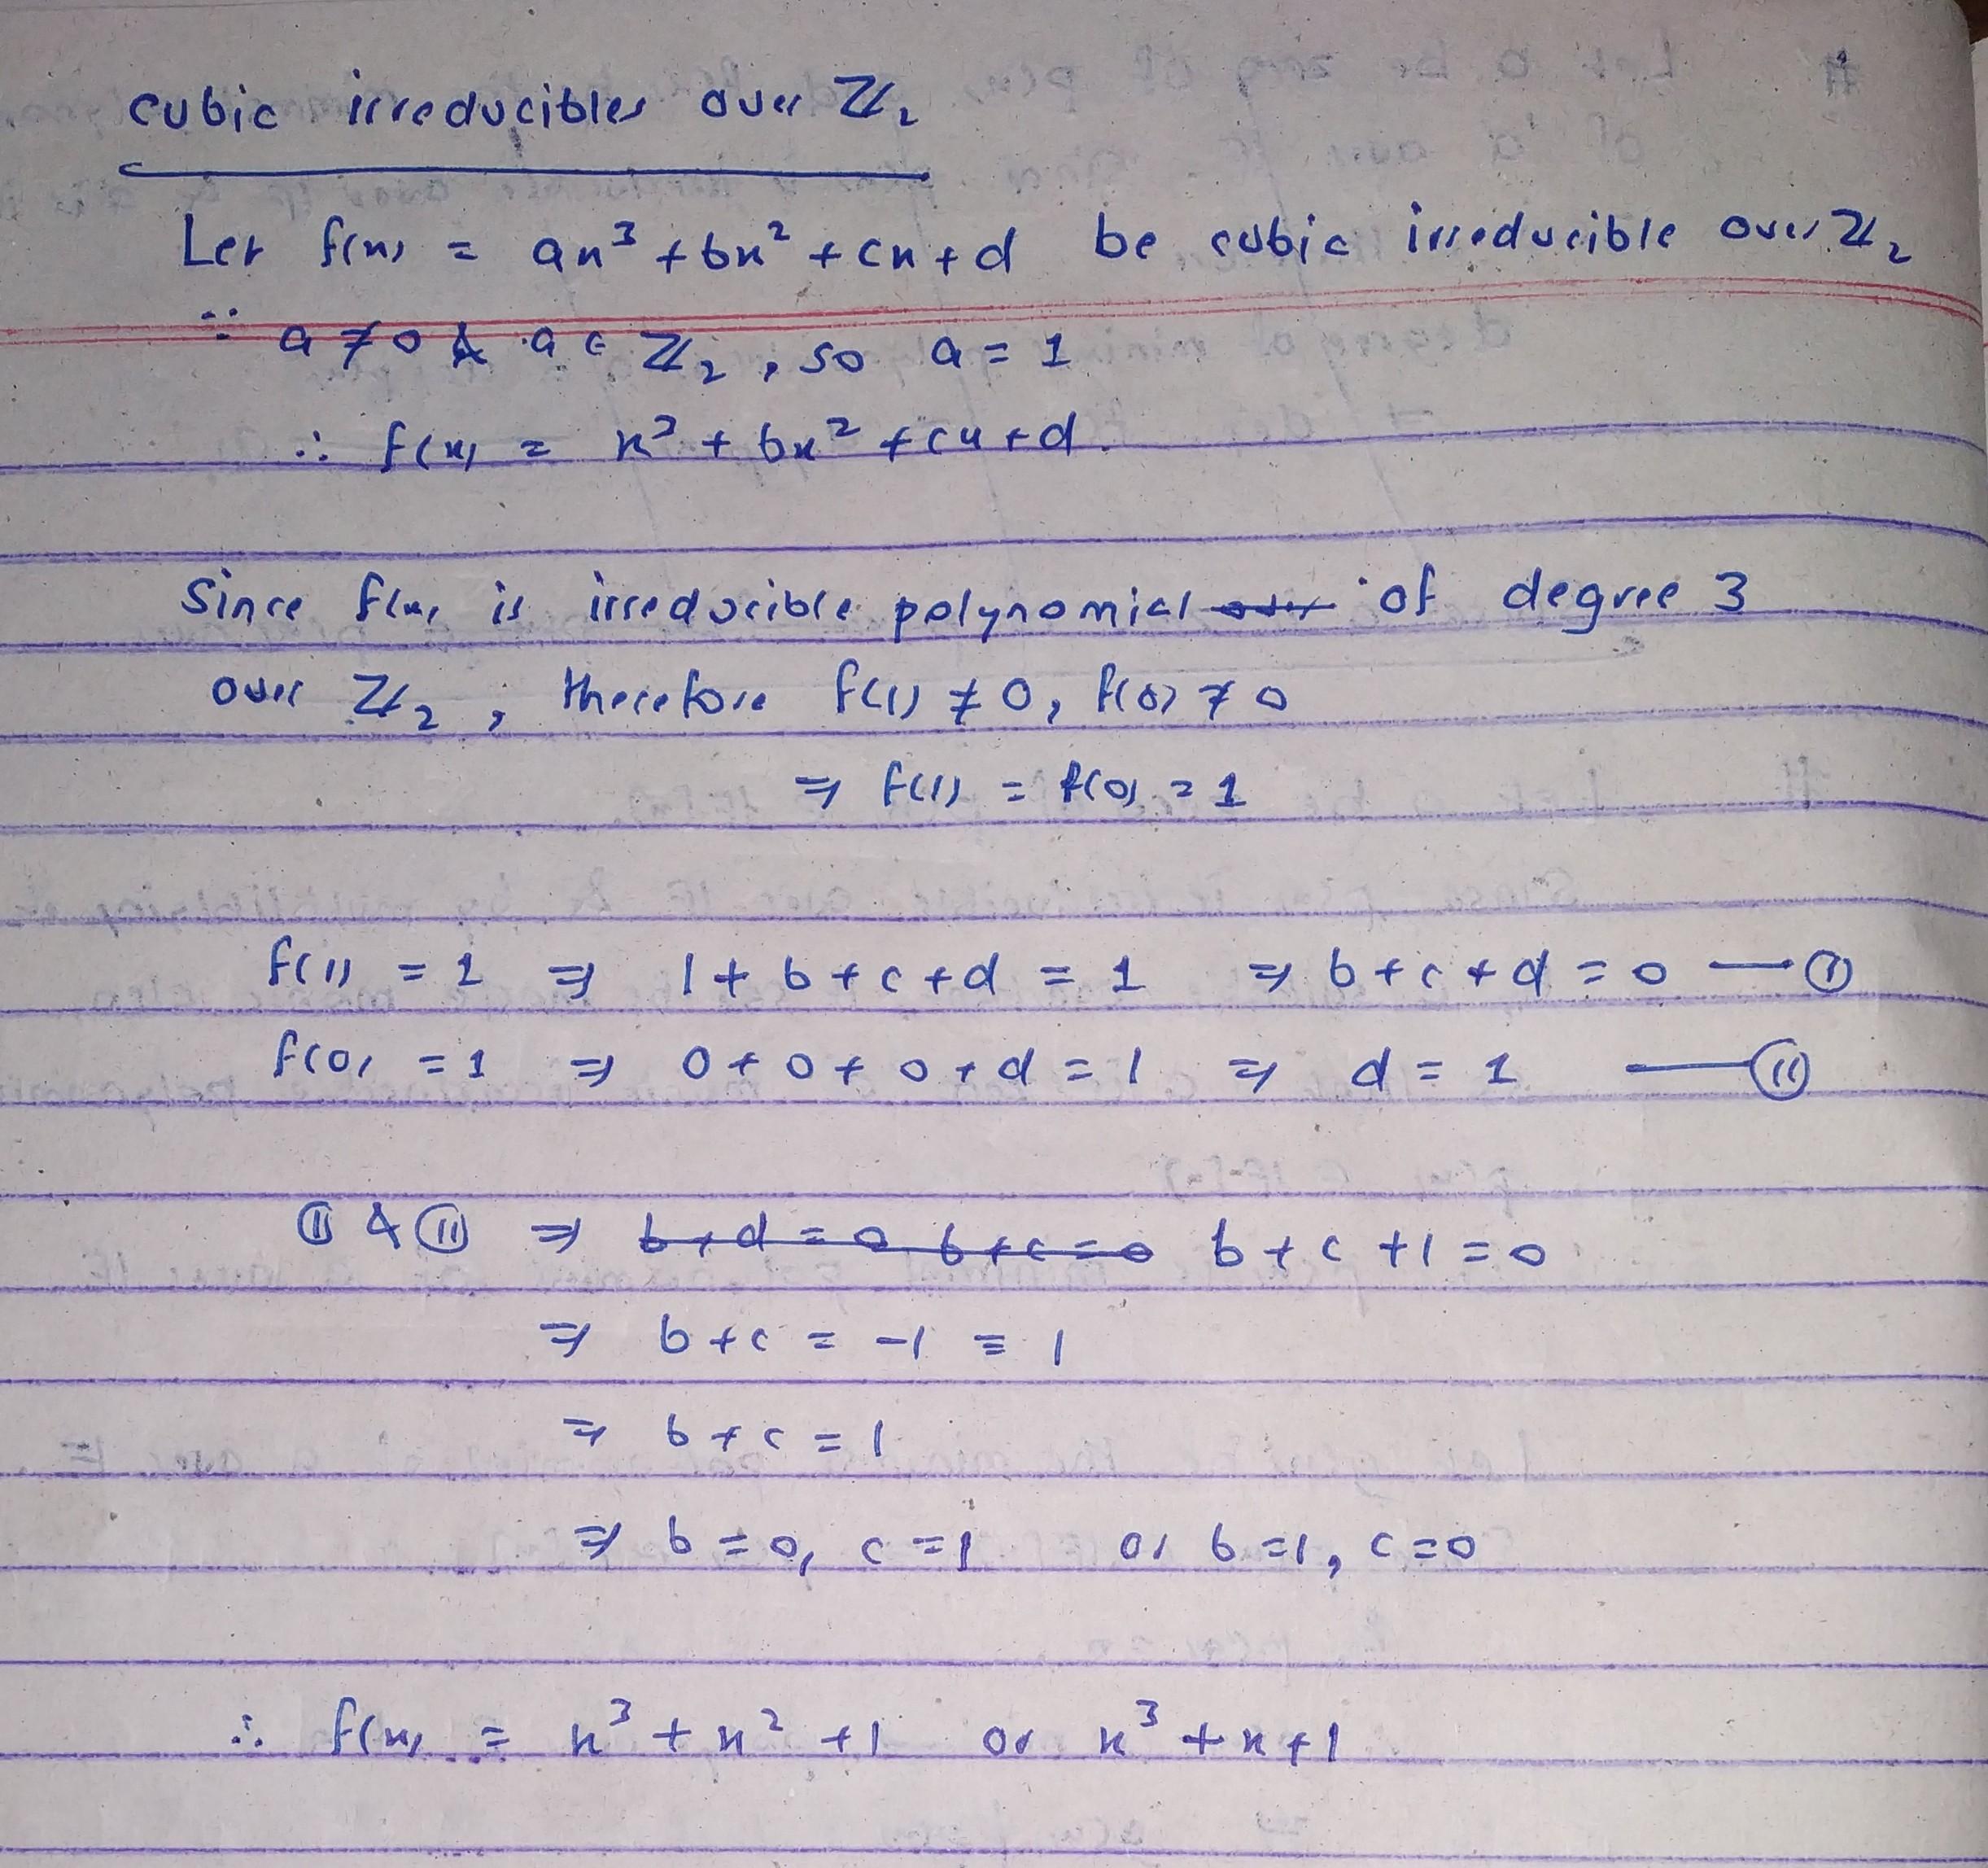 cubic irreducibles over ℤ₂
Let f(x) = ax³ + bx² + cx + d be cubic irreducible over ℤ₂
∵ a ≠ 0 & a ∈ ℤ₂, so a = 1
∴ f(x) = x³ + bx² + cx + d.
Since f(x) is irreducible polynomial of degree 3
over ℤ₂, therefore f(1) ≠ 0, f(0) ≠ 0
⇒ f(1) = f(0) = 1
f(1) = 1 ⇒ 1 + b + c + d = 1 ⇒ b + c + d = 0 — (I)
f(0) = 1 ⇒ 0 + 0 + 0 + d = 1 ⇒ d = 1 — (II)
(I) & (II) ⇒ b + d = 0 b + c = 0 b + c + 1 = 0
⇒ b + c = -1 ≡ 1
⇒ b + c = 1
⇒ b = 0, c = 1 or b = 1, c = 0
∴ f(x) = x³ + x² + 1 or x³ + x + 1